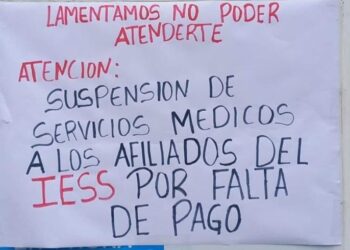 LAMENTAMOS NO PODER
ATENDERTE
ATENCION:
SUSPENSION DE
SERVICIOS MEDICOS
A LOS AFILIADOS DEL
IESS POR FALTA
DE PAGO